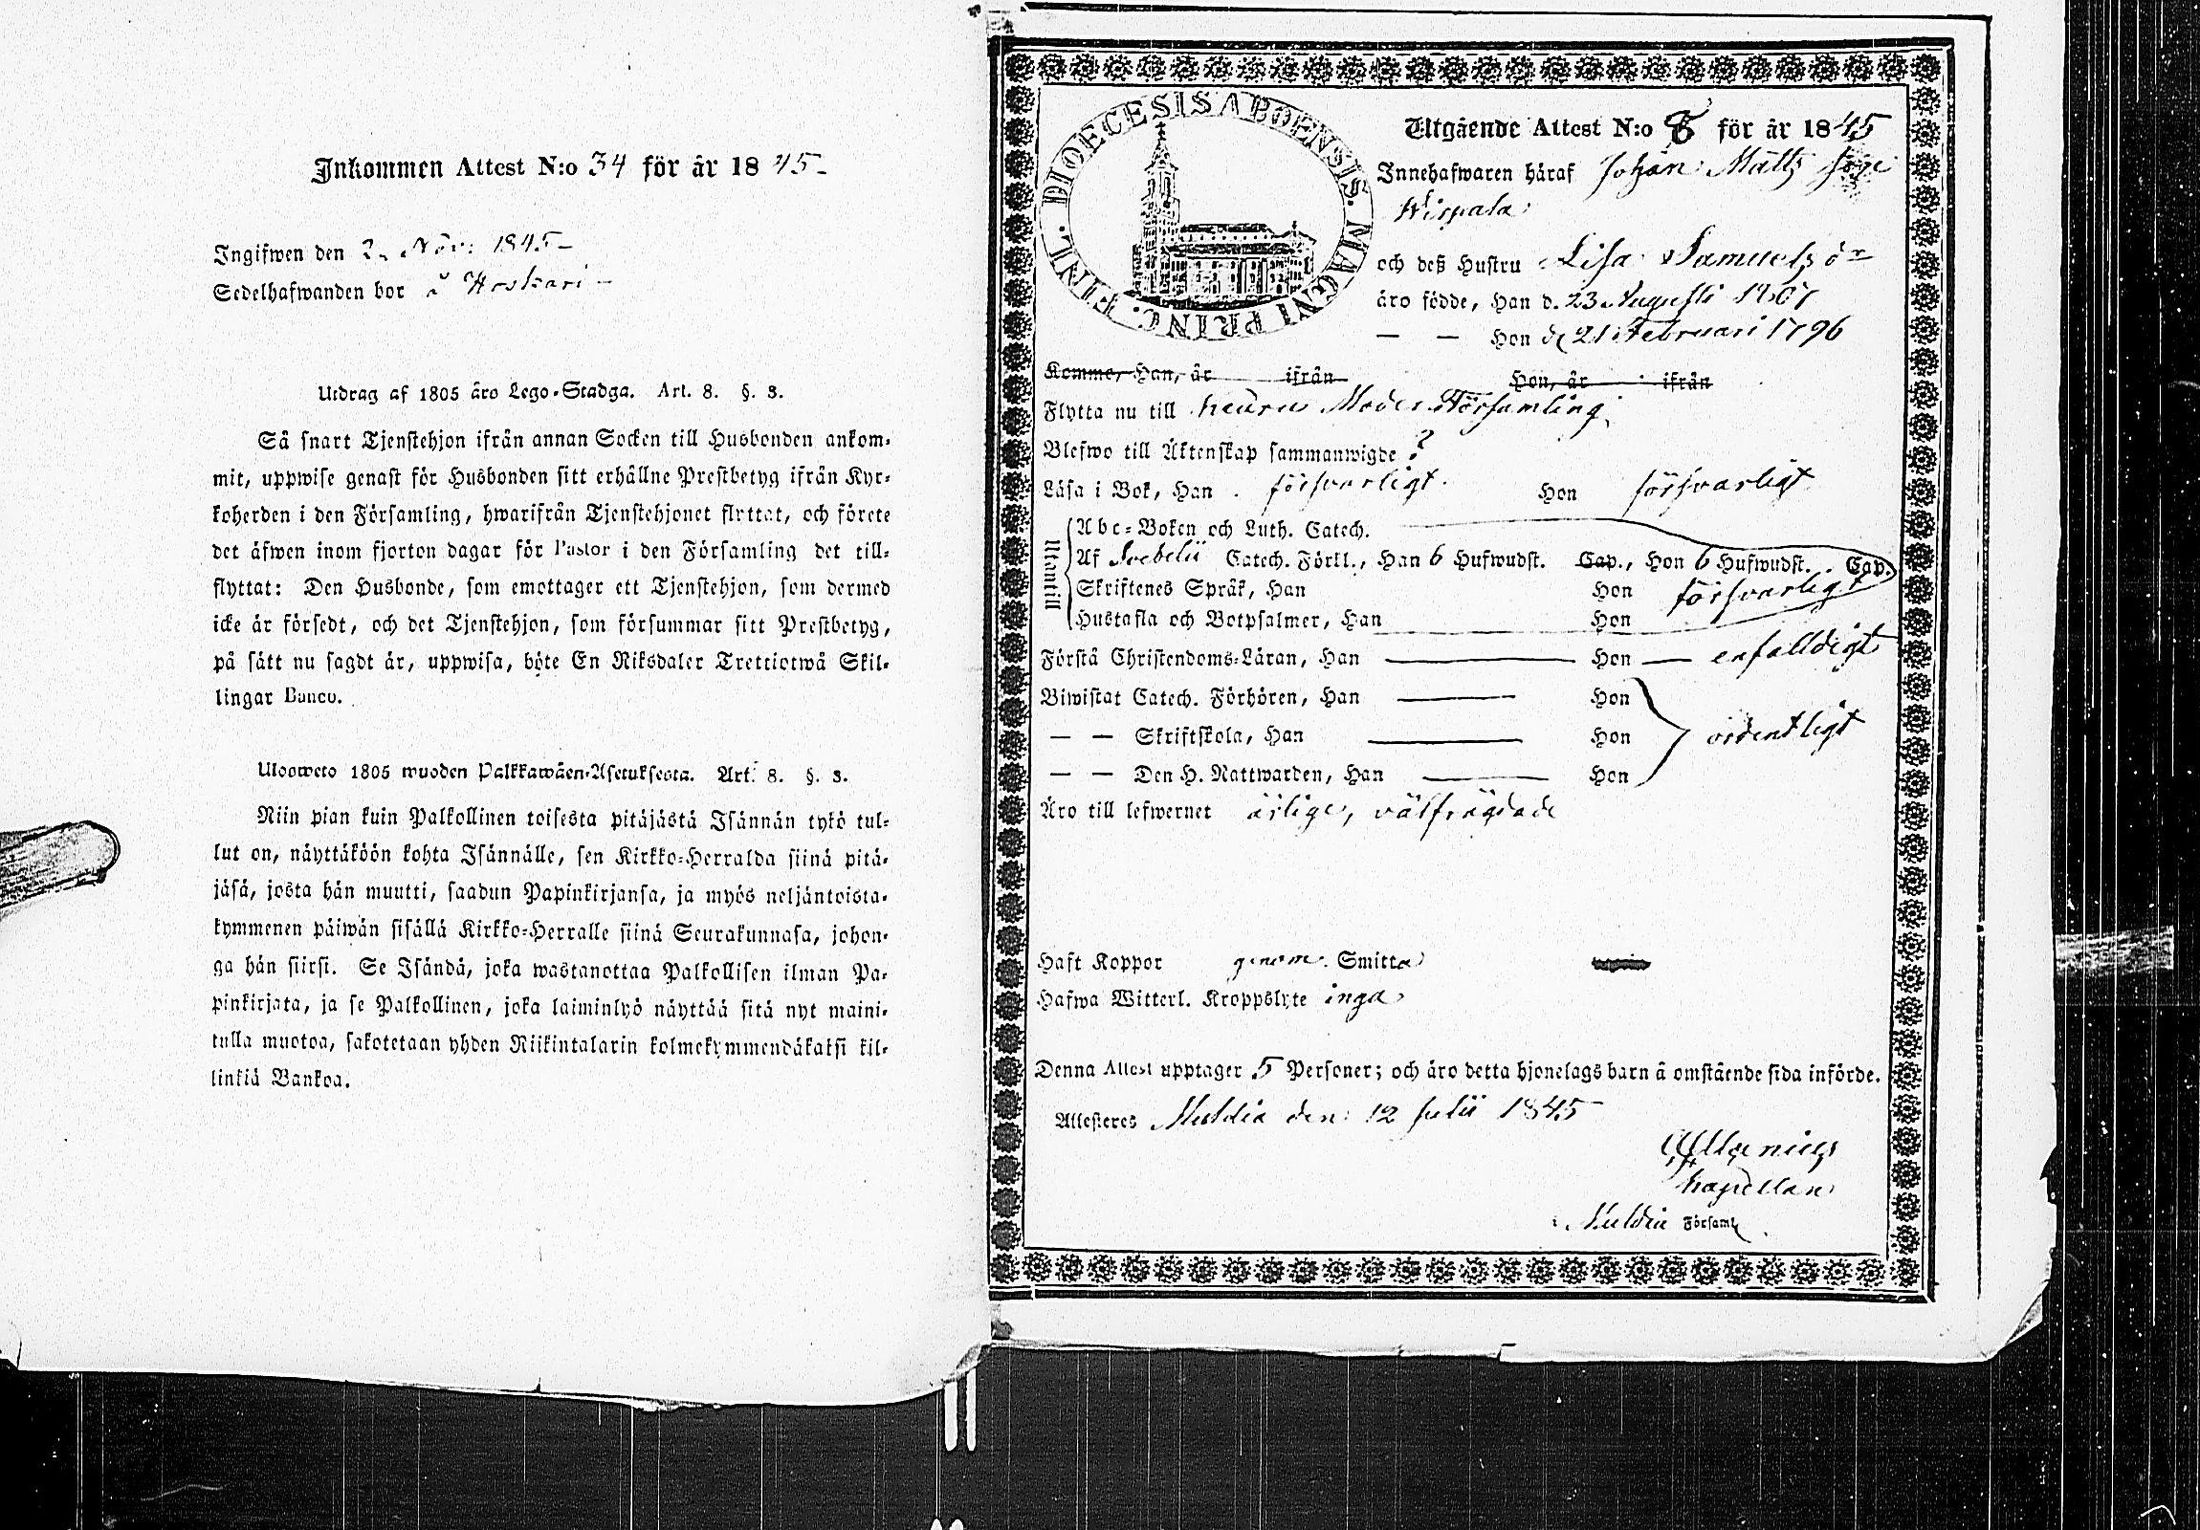 Inkommen Attest N:o 34 för år 1845
Ingifwen den 2 Nov: 1845
Sedelhafwanden bor i
Utdrag af 1805 åro Lego-Stadga. Art. 8. §. 3.
Så snart Tjenstehjon ifrån annan Socken till Husbonden ankom-
mit, uppwise genast för Husbonden sitt erhållne Prestbetyg ifrån Kyr-
koherden i den Församling, hwarifrån Tjenstehjonet flyttat, och förete
det äfwen inom fjorton dagar för Pastor i den Församling det till-
flyttat: Den Husbonde, som emottager ett Tjenstehjon, som dermed
icke är försedt, och det Tjenstehjon, som försummar sitt Prestbetyg,
på sätt nu sagdt är, uppwisa, böte En Riksdaler Trettiotwå Skil-
lingar Banco.
Ulooweto 1805 wuoden Palkkawäen-Asetuksesta. Art. 8. §. 3.
Niin pian kuin Palkollinen toisesta pitäjästä Isännän tykö tul-
lut on, näyttäköön kohta Isännälle, sen Kirkko-Herralda siinä pitä-
jäsä, josta hän muutti, saadun Papinkirjansa, ja myös neljäntoista-
kymmenen päiwän sisällä Kirkko-Herralle siinä Seurakunnasa, johon-
ga hän siirsi. Se Isändä, joka wastanottaa Palkollisen ilman Pa-
pinkirjata, ja se Palkollinen, joka laiminlyö näyttää sitä nyt maini-
tulla muotoa, sakotetaan yhden Riikintalarin kolmekymmendäkaksi kil-
linkiä Bankoa.
DIOECESIS ABOENSIS. MAGNI PRINC. FINL.
Utgående Attest N:o 8 för år 1845
Innehafwaren häraf Johan Matts
och deß Hustru Lisa Samuels
äro födde, Han d. 23 Augusti 1807
— — Hon d 21 Februari 1796
Komme, Han, år ifrån Hon, år ifrån
Flytta nu till Keuru Moder Församling
Blefwo till Äktenskap sammanwigde ?
Läsa i Bok, Han försvarligt Hon försvarligt
Utantill
Abc-Boken och Luth. Catech.
Af Svebelii Catech. Förkl., Han 6 Hufwudst. Cap., Hon 6 Hufwudst. Cap.
Skriftenes Språk, Han Hon försvarligt
Hustafla och Botpsalmer, Han Hon
Förstå Christendoms-Läran, Han — Hon — enfalldigt
Biwistat Catech. Förhören, Han — Hon
— — Skriftskola, Han — Hon ordentligt
— — Den H. Nattwarden, Han — Hon
Äro till lefwernet ärlige, välfrägdade
Haft Koppor genom Smitta
Hafwa Witterl. Kroppslyte inga
Denna Attest upptager 5 Personer; och äro detta hjonelags barn å omstående sida införde.
Attesteres Muldia den 12 Julii 1845
Kapellan
i Muldia Församl